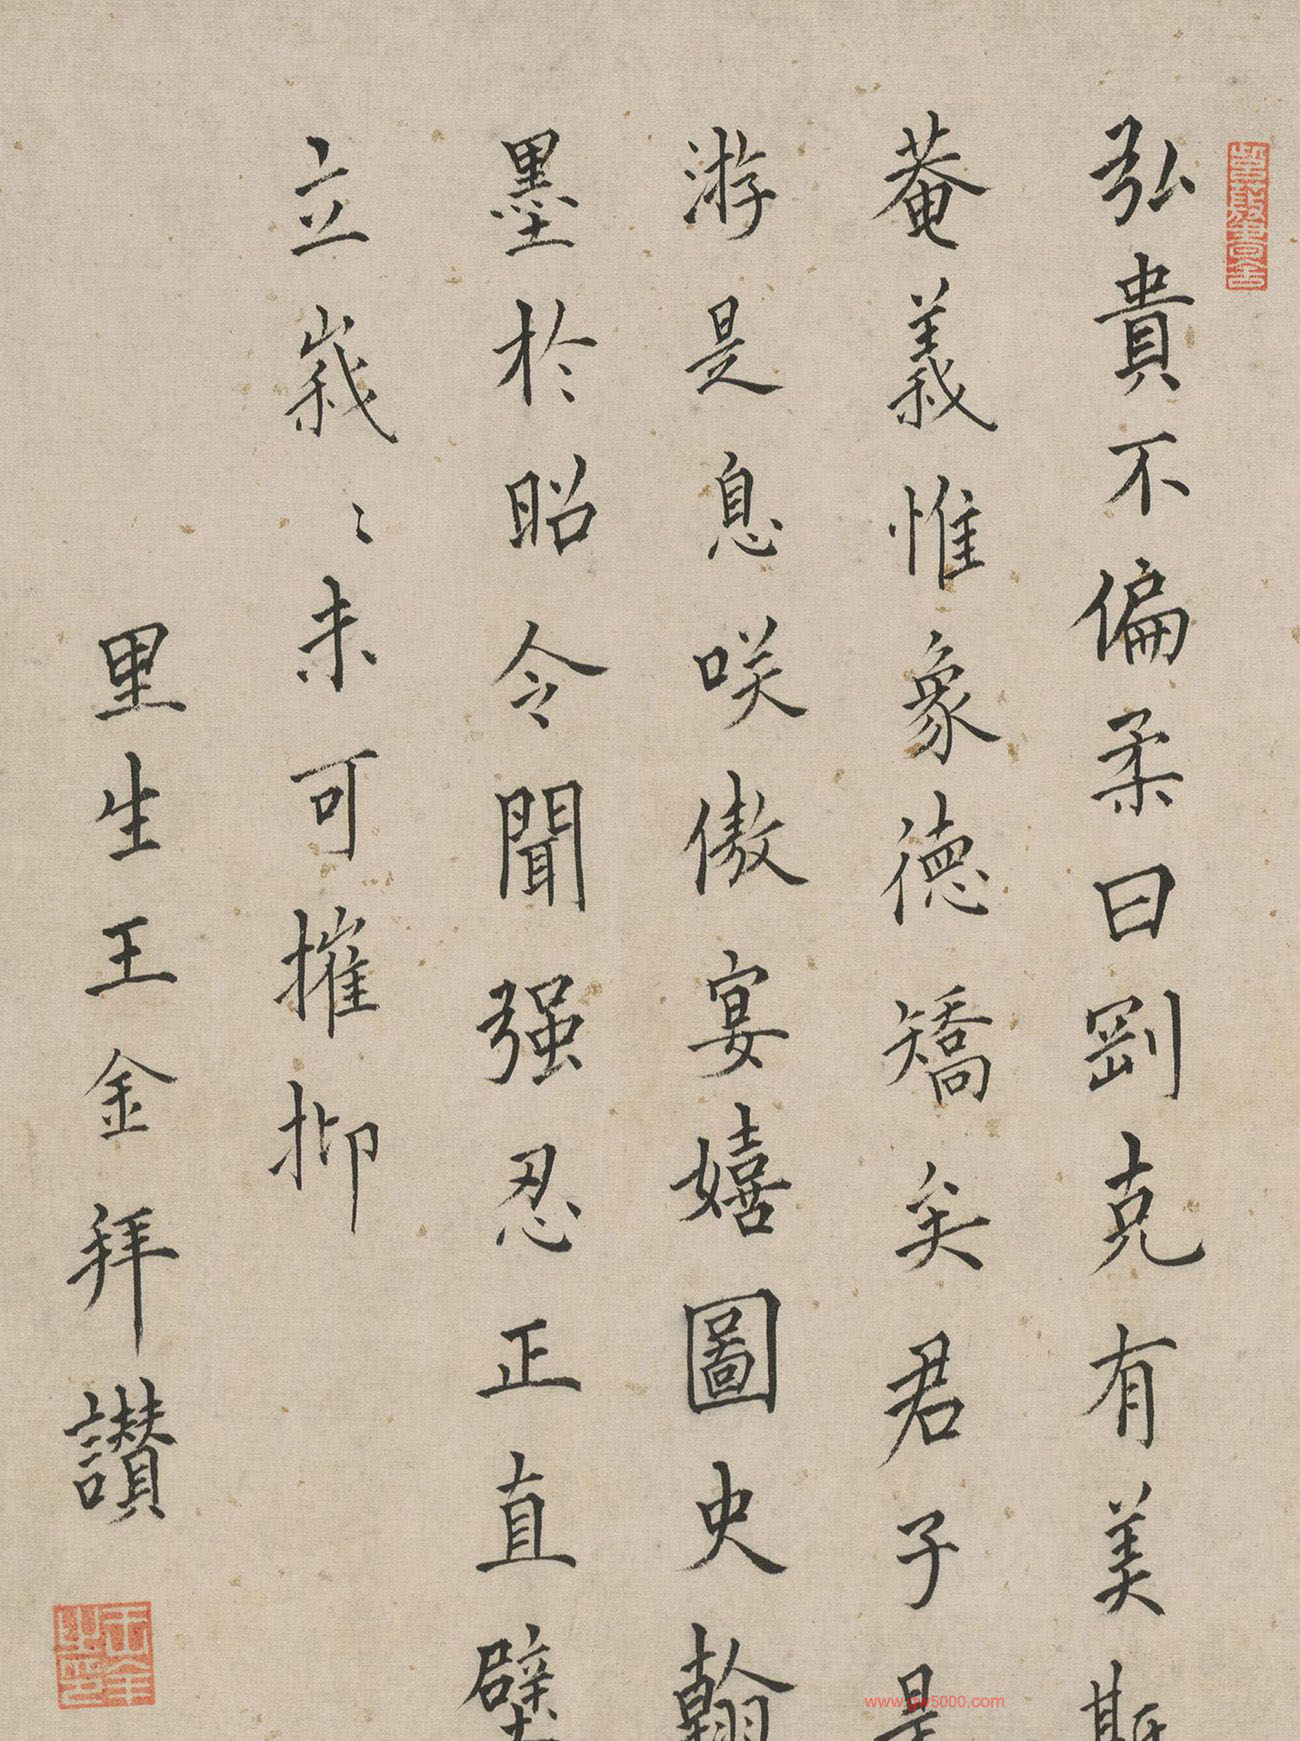 弘貴不偏柔曰剛克有美斯
菴義惟象德矯矣君子是
游是息咲傲宴嬉圖史翰
墨於昭令聞强忍正直壁
立峩〻未可摧抑
里生王金拜讚
王金
www.gw5000.com